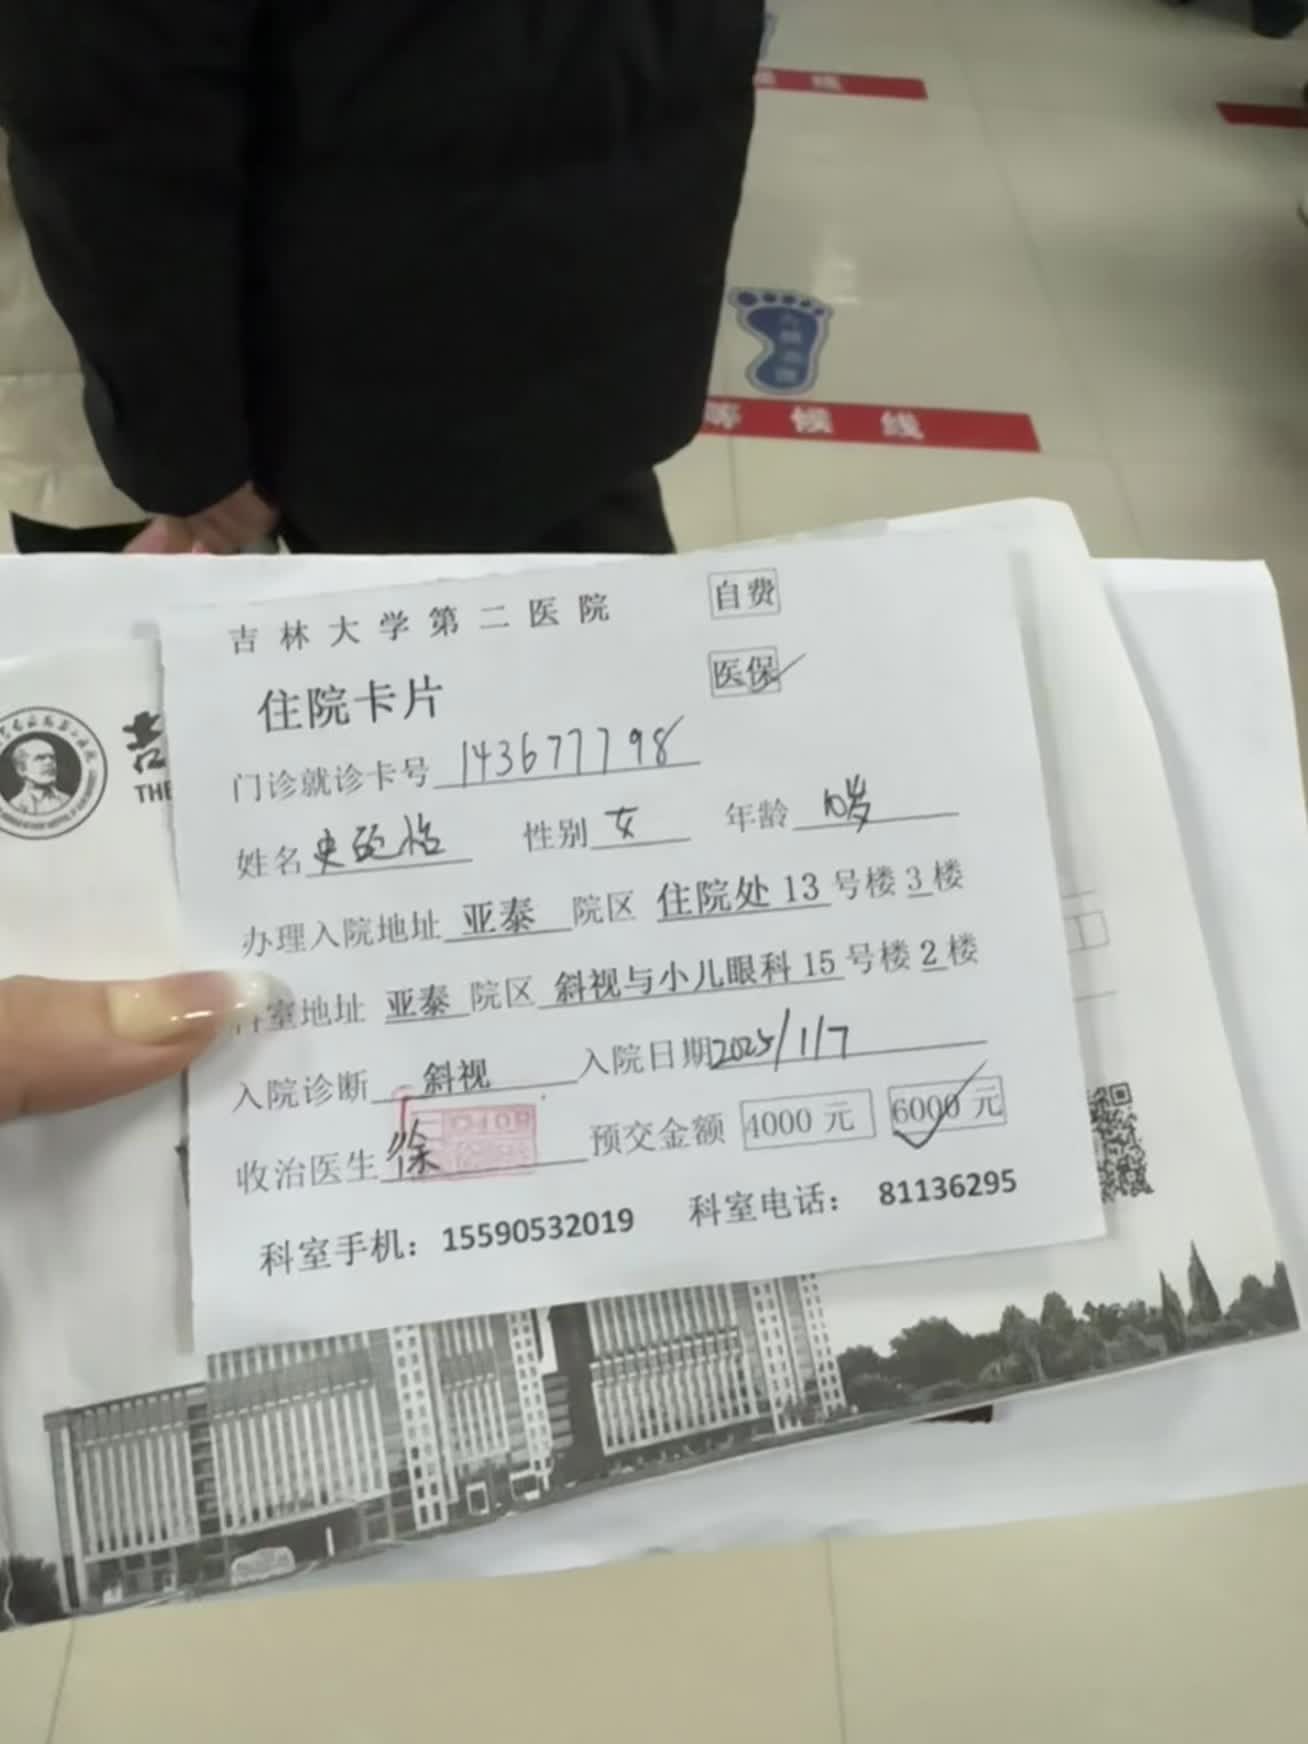 等候线
吉林大学第二医院
自费
住院卡片
医保
门诊就诊卡号 143677798
姓名 史 怡 性别 女 年龄 10岁
办理入院地址 亚泰 院区 住院处 13 号楼 3 楼
科室地址 亚泰 院区 斜视与小儿眼科 15 号楼 2 楼
入院诊断 斜视 入院日期 2025/1/7
收治医生 徐 预交金额 4000 元 6000 元
科室手机：15590532019 科室电话：81136295
吉
THE